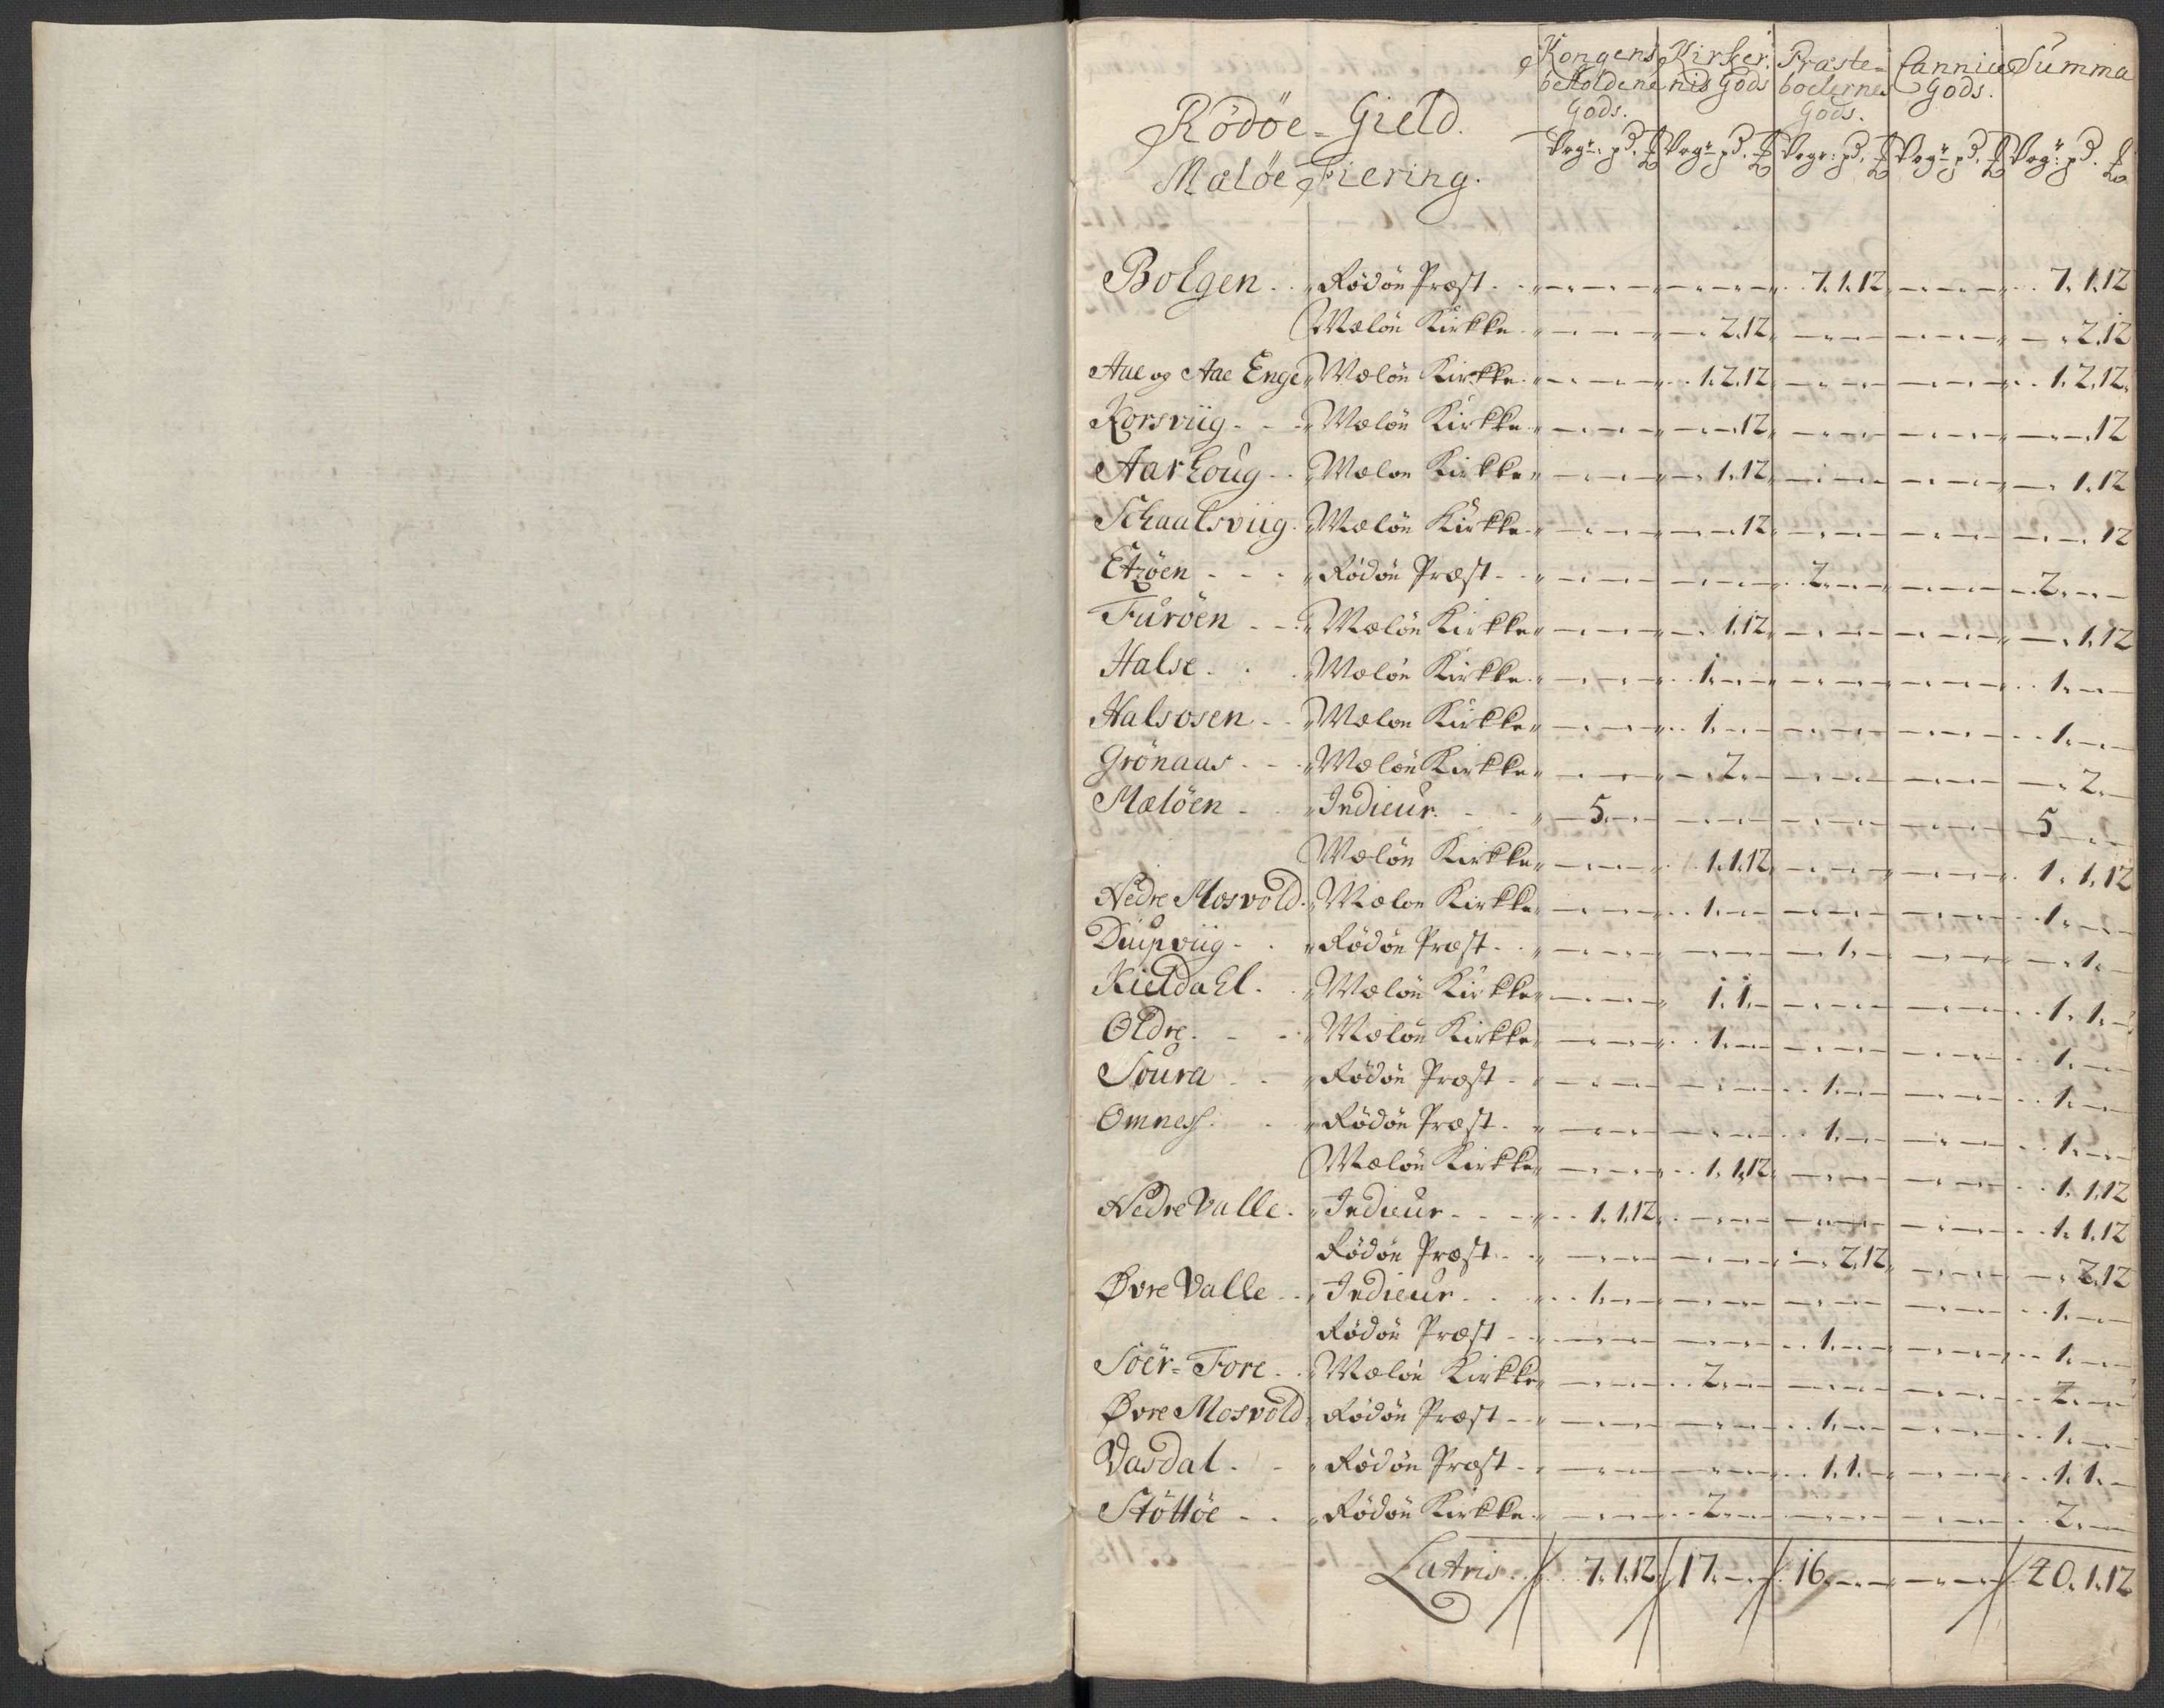 Rödöe-Gield.
Maløe Fiering.
Kongens beholdene Gods. Kirker nis Gods Præste boelernes Gods. Cannice Gods. Summa
Wogr: pd. Wogr pd. Wogr: pd. Wogr pd. Wogr: pd.
Bolgen. Rødøe Præst 7.1.12 7.1.12
Mæløe Kirkke 2.12 2.12
Aae og Aae Enge Mæløe Kirkke 1.2.12 1.2.12
Korsviig Mæløe Kirkke 12 12
Aarhoug Mæløe Kirkke 1.12 1.12
Schaalsviig Mæløe Kirkke 12 12
Etzöen Rødøe Præst 2 2
Furöen Mæløe Kirkke 1.12 1.12
Halse Mæløe Kirkke 1 1
Halsosen Mæløe Kirkke 1 1
Grönaas Mæløe Kirkke 2 2
Mælöen Indieur 5 5
Mæløe Kirkke 1.1.12 1.1.12
Nedre Mosvold Mæløe Kirkke 1 1
Duipviig Rødøe Præst 1 1
Kieldahl Mæløe Kirkke 1.1 1.1
Oldre Mæløe Kirkke 1 1
Soura Rødøe Præst 1 1
Omness Rødøe Præst 1 1
Mæløe Kirkke 1.1.12 1.1.12
Nedre Valle Indieur 1.1.12 1.1.12
Rødøe Præst 2.12 2.12
Øvre Valle Indieur 1 1
Rødøe Præst 1 1
Söer-Fore Mæløe Kirkke 2 2
Øvre Mosvold Rødøe Præst 1 1
Vasdal Rødøe Præst 1.1 1.1
Stöttöe Rødøe Kirkke 2 2
Latris 7.1.12 17 16 40.1.12